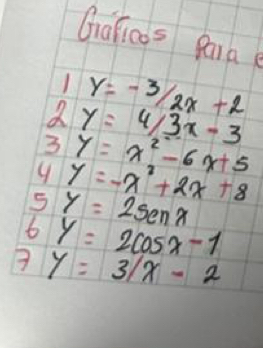 Gráficos Para e
1 Y = -3/2x + 2
2 Y = 4/3x - 3
3 Y = x² - 6x + 5
4 Y = -x² + 2x + 8
5 Y = 2senx
6 Y = 2cosx - 1
7 Y = 3/x - 2